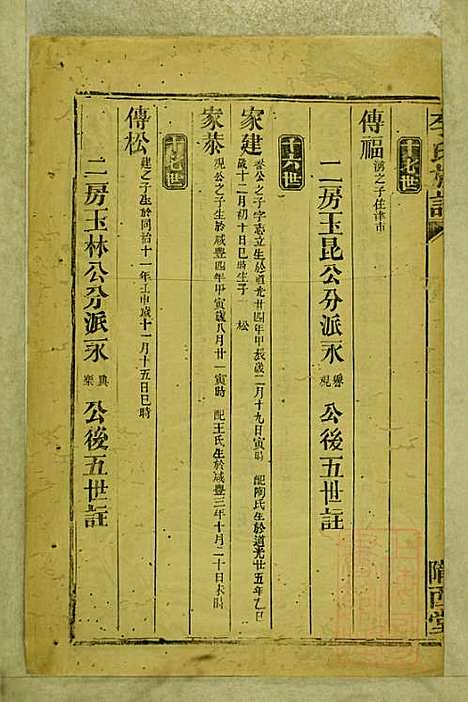 李氏族譜
隴西堂
十七世
傳福 湧之子住津市
二房玉昆公分派永 譽 祝 公後五世註
十六世
家建 譽公之子字志立生於道光廿四年甲辰歲二月十九日寅時 配陶氏生於道光廿五年乙巳
歲十二月初十日巳時生子 松
家恭 祝公之子生於咸豐四年甲寅歲八月廿一寅時 配王氏生於咸豐三年十月二十日未時
十七世
傳松 建之子生於同治十一年壬申歲十一月十五日巳時
二房玉林公分派永 典 樂 公後五世註